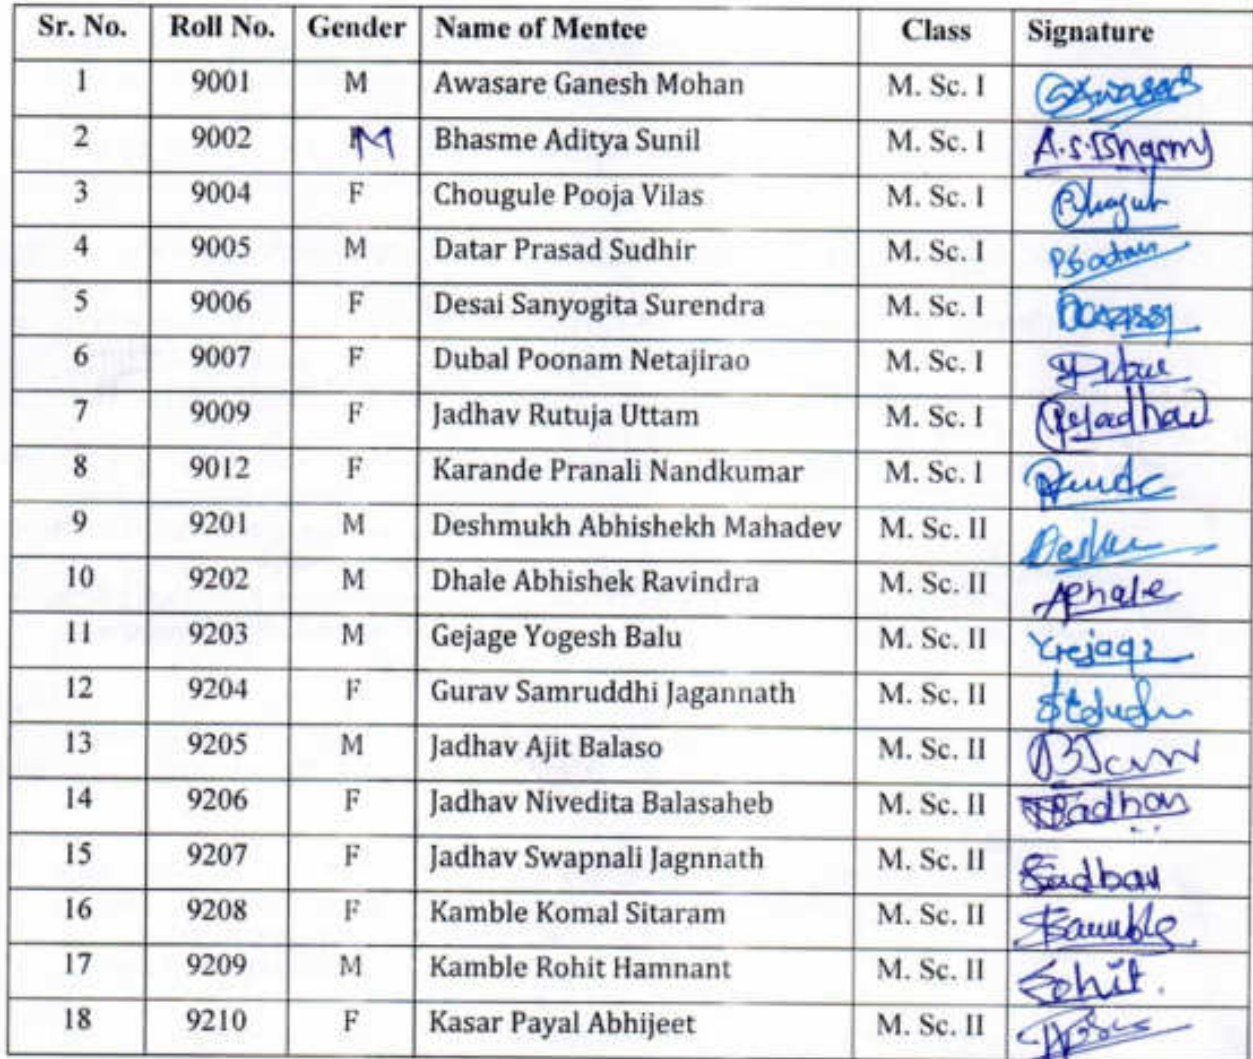 Sr. No. Roll No. Gender Name of Mentee Class Signature
1 9001 M Awasare Ganesh Mohan M. Sc. I
2 9002 M Bhasme Aditya Sunil M. Sc. I A.S.Bhasme
3 9004 F Chougule Pooja Vilas M. Sc. I
4 9005 M Datar Prasad Sudhir M. Sc. I
5 9006 F Desai Sanyogita Surendra M. Sc. I
6 9007 F Dubal Poonam Netajirao M. Sc. I
7 9009 F Jadhav Rutuja Uttam M. Sc. I
8 9012 F Karande Pranali Nandkumar M. Sc. I
9 9201 M Deshmukh Abhishekh Mahadev M. Sc. II
10 9202 M Dhale Abhishek Ravindra M. Sc. II
11 9203 M Gejage Yogesh Balu M. Sc. II
12 9204 F Gurav Samruddhi Jagannath M. Sc. II
13 9205 M Jadhav Ajit Balaso M. Sc. II
14 9206 F Jadhav Nivedita Balasaheb M. Sc. II
15 9207 F Jadhav Swapnali Jagnnath M. Sc. II
16 9208 F Kamble Komal Sitaram M. Sc. II
17 9209 M Kamble Rohit Hamnant M. Sc. II Rohit.
18 9210 F Kasar Payal Abhijeet M. Sc. II